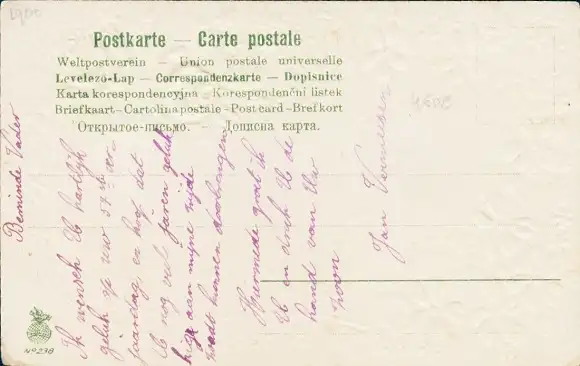 1900
Postkarte — Carte postale
Weltpostverein — Union postale universelle
Levelező-Lap — Correspondenzkarte — Dopisnice
Karta korespondencyjna — Korespondenční listek
Briefkaart — Cartolina postale — Post card — Brefkort
Открытое-письмо. — Дописна карта.
Beminde Vader
Ik wensch Ub hartlijk
geluk op uw 57ste ver-
jaardag en hoop dat
Ub nog veel jaren geluk
hig aan mijne zijde
zoudt kunnen doorbrengen
Hiermede groet ik
Ub en druk Ub de
hand van Uw
zoon
Jan Vermeesen
No 238